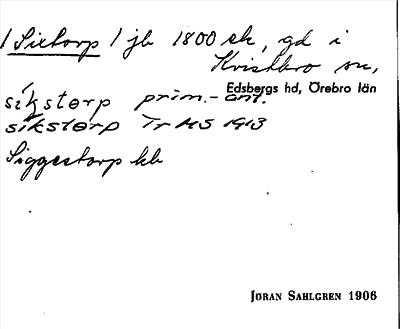 / Sixtorp / jb 1800 ck, gd i
Kvistbro sn,
Edsbergs hd, Örebro län
síkstorp prim.-ant.
síkstørp Tr MS 1913
Siggestorp kb
JÖRAN SAHLGREN 1906